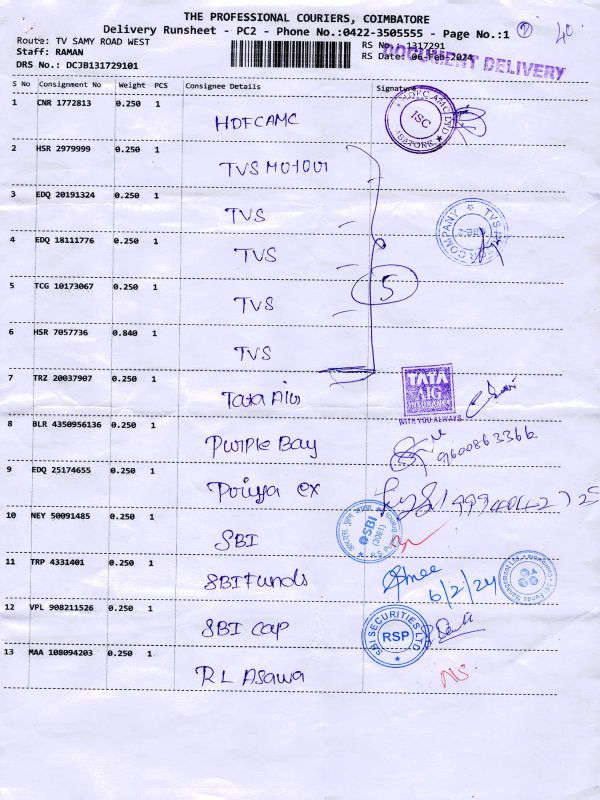 THE PROFESSIONAL COURIERS, COIMBATORE
Delivery Runsheet - PC2 - Phone No.:0422-3505555 - Page No.:1
2 40
Route: TV SAMY ROAD WEST
Staff: RAMAN
DRS No.: DCJB131729101
RS No. 1317291
RS Date: 06-Feb-2024
DOCUMENT DELIVERY
S No Consignment No Weight PCS Consignee Details Signature
1 CNR 1772813 0.250 1 HDFCAMC
ISC
2 HSR 2979999 0.250 1 TVS Motour
3 EDQ 20191324 0.250 1 TVS
4 EDQ 18111776 0.250 1 TVS
5 TCG 10173067 0.250 1 TVS
5
6 HSR 7057736 0.840 1 TVS
7 TRZ 20037907 0.250 1 Tata Aiw
TATA
AIG
INSURANCE
WITH YOU ALWAYS
8 BLR 4350956136 0.250 1 Purple Bay
9600863366
9 EDQ 25174655 0.250 1 Poriyya ex
10 NEY 50091485 0.250 1 SBI
SBI
(3061)
11 TRP 4331401 0.250 1 SBI Funds
6/2/24
12 VPL 908211526 0.250 1 SBI Cap
SBI SECURITIES LTD
RSP
13 MAA 108094203 0.250 1 R L Asawa
NS.